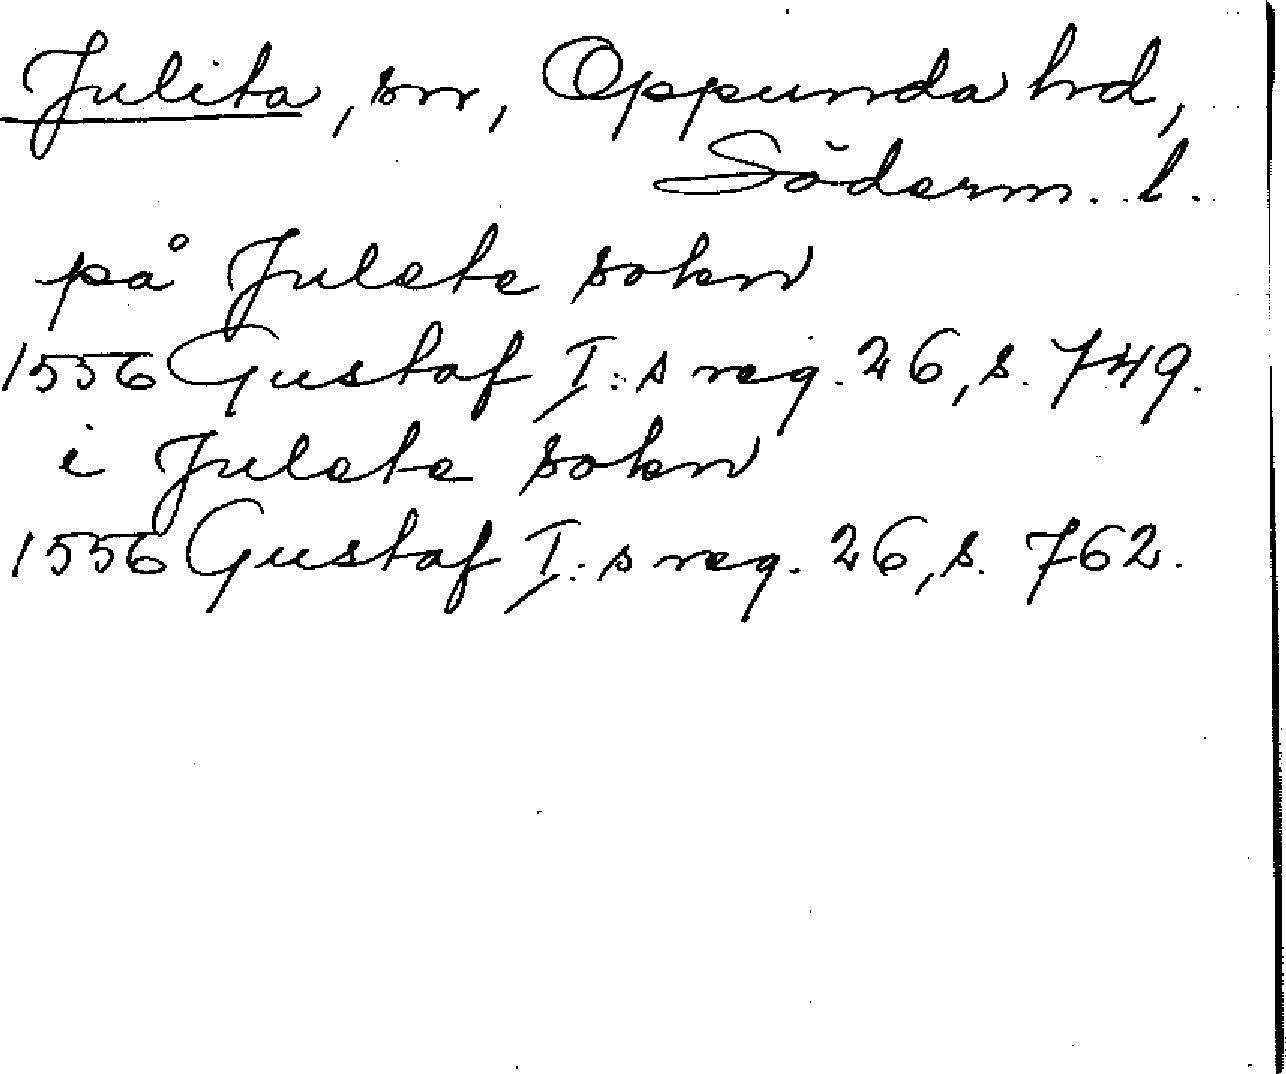 Julita, sn, Oppunda hd,
Söderm. l.
på Julete sokn
1556 Gustaf I:s reg. 26, s. 749.
i Julete sokn
1556 Gustaf I:s reg. 26, s. 762.